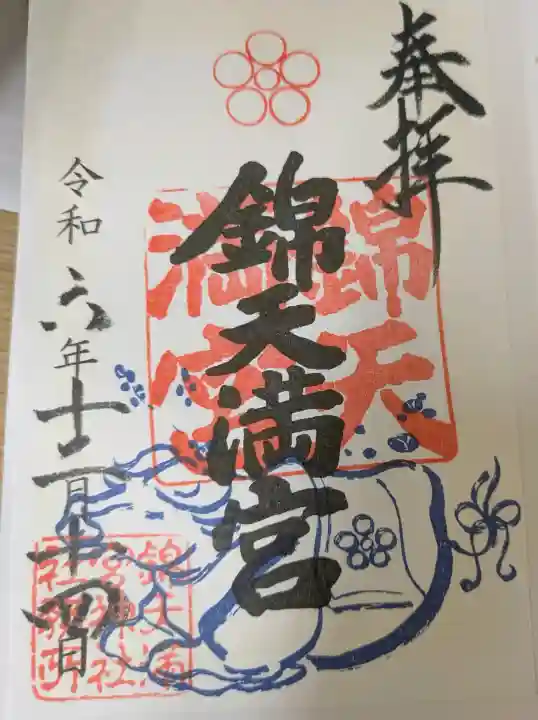 奉拝
錦天満宮
令和六年十二月十四日
錦天
満宮
錦天満
宮神社